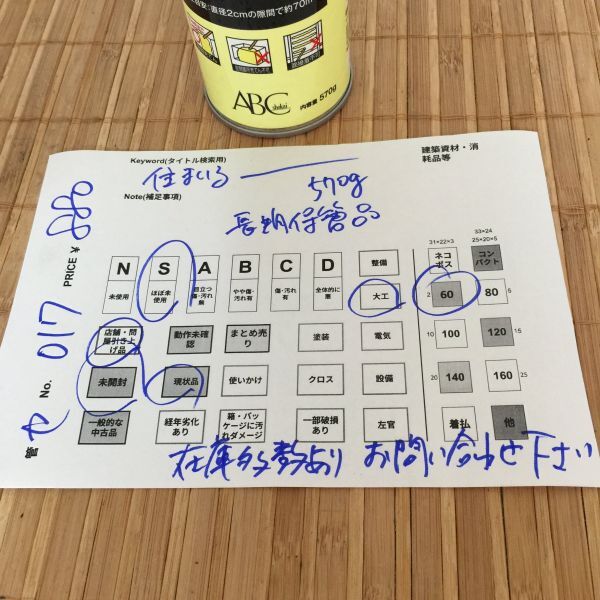 直径2cmの隙間で約70m
ABC
内容量 570g
Keyword(タイトル検索用)
建築資材・消
耗品等
住まいる
Note(補足事項)
570g
長期保管品
PRICE ¥ 880
No. 017
31×22×3
33×24
25×20×5
N S A B C D
未使用
ほぼ未
使用
目立つ
傷・汚れ
無
やや傷・
汚れ有
傷・汚れ
有
全体的に
悪
整備
大工
ネコ
ポス
コン
パクト
60
80
5
店舗・問
屋引き上
げ品
動作未確
認
まとめ売
り
塗装
電気
100
120
15
未開封
現状品
使いかけ
クロス
設備
20
140
160
25
一般的な
中古品
経年劣化
あり
箱・パッ
ケージに汚
れダメージ
一部破損
あり
左官
着払
他
在庫多数あり お問い合わせ下さい